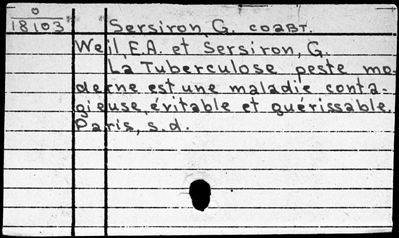 0
18103
Sersiron, G. соавт.
Weil, E.A. et Sersiron, G.
La Tuberculose peste mo-
derne est une maladie conta-
gieuse, évitable et guérissable.
Paris, s.d.